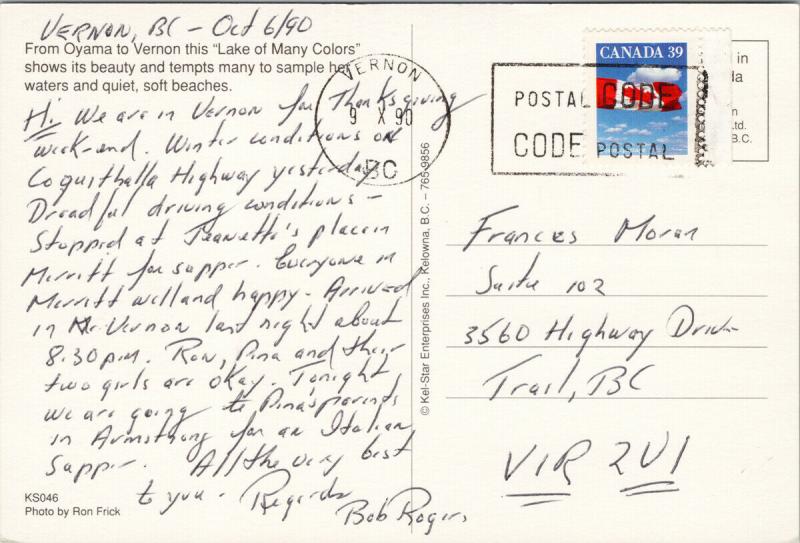 VERNON, BC - Oct 6/90
From Oyama to Vernon this "Lake of Many Colors"
shows its beauty and tempts many to sample her
waters and quiet, soft beaches.
Hi, We are in Vernon for Thanksgiving
week-end. Winter conditions on
Coquithalla Highway yesterday
Dreadful driving conditions -
Stopped at Jeanette's place in
Merritt for supper. Everyone in
Merritt well and happy. Arrived
in Vernon last night about
8:30 p.m. Ron, Pina and their
two girls are okay. Tonight
we are going to Pina's parents
in Armstrong for an Italian
Supper. All the very best
to you - Regards
Bob Rogers
KS046
Photo by Ron Frick
© Kel-Star Enterprises Inc., Kelowna, B.C. - 765-9856
VERNON
9 X 90
BC
POSTAL CODE
CODE POSTAL
CANADA 39
in
da
n
Ltd.
B.C.
Frances Moran
Suite 102
3560 Highway Drive
Trail, BC
V1R 2V1